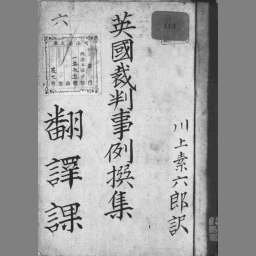 川上素六郎訳
英國裁判事例撰集
六
翻譯課